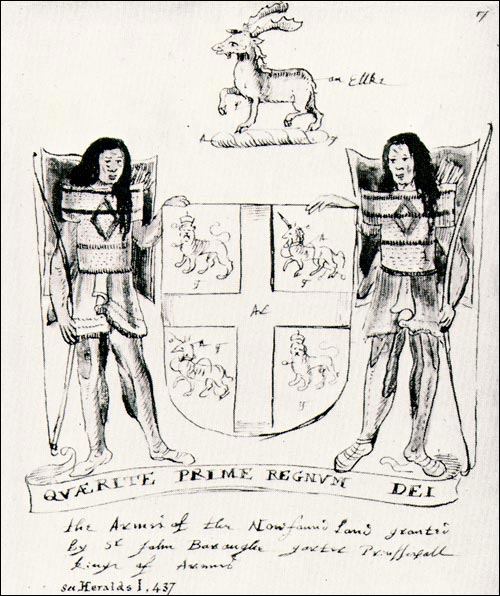 an Ellke
A
QVÆRITE PRIME REGNVM DEI
the Armes of the Nowfound Land granted
by Sr John Borough garter Principall
kinge of Armes
see Heralds I, 437